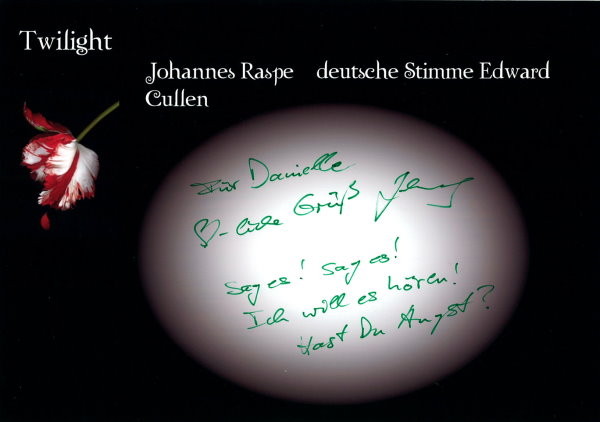 Twilight
Johannes Raspe deutsche Stimme Edward
Cullen
Für Danielle
♡-liche Grüß
Sag es! Sag es!
Ich will es hören!
Hast Du Angst?